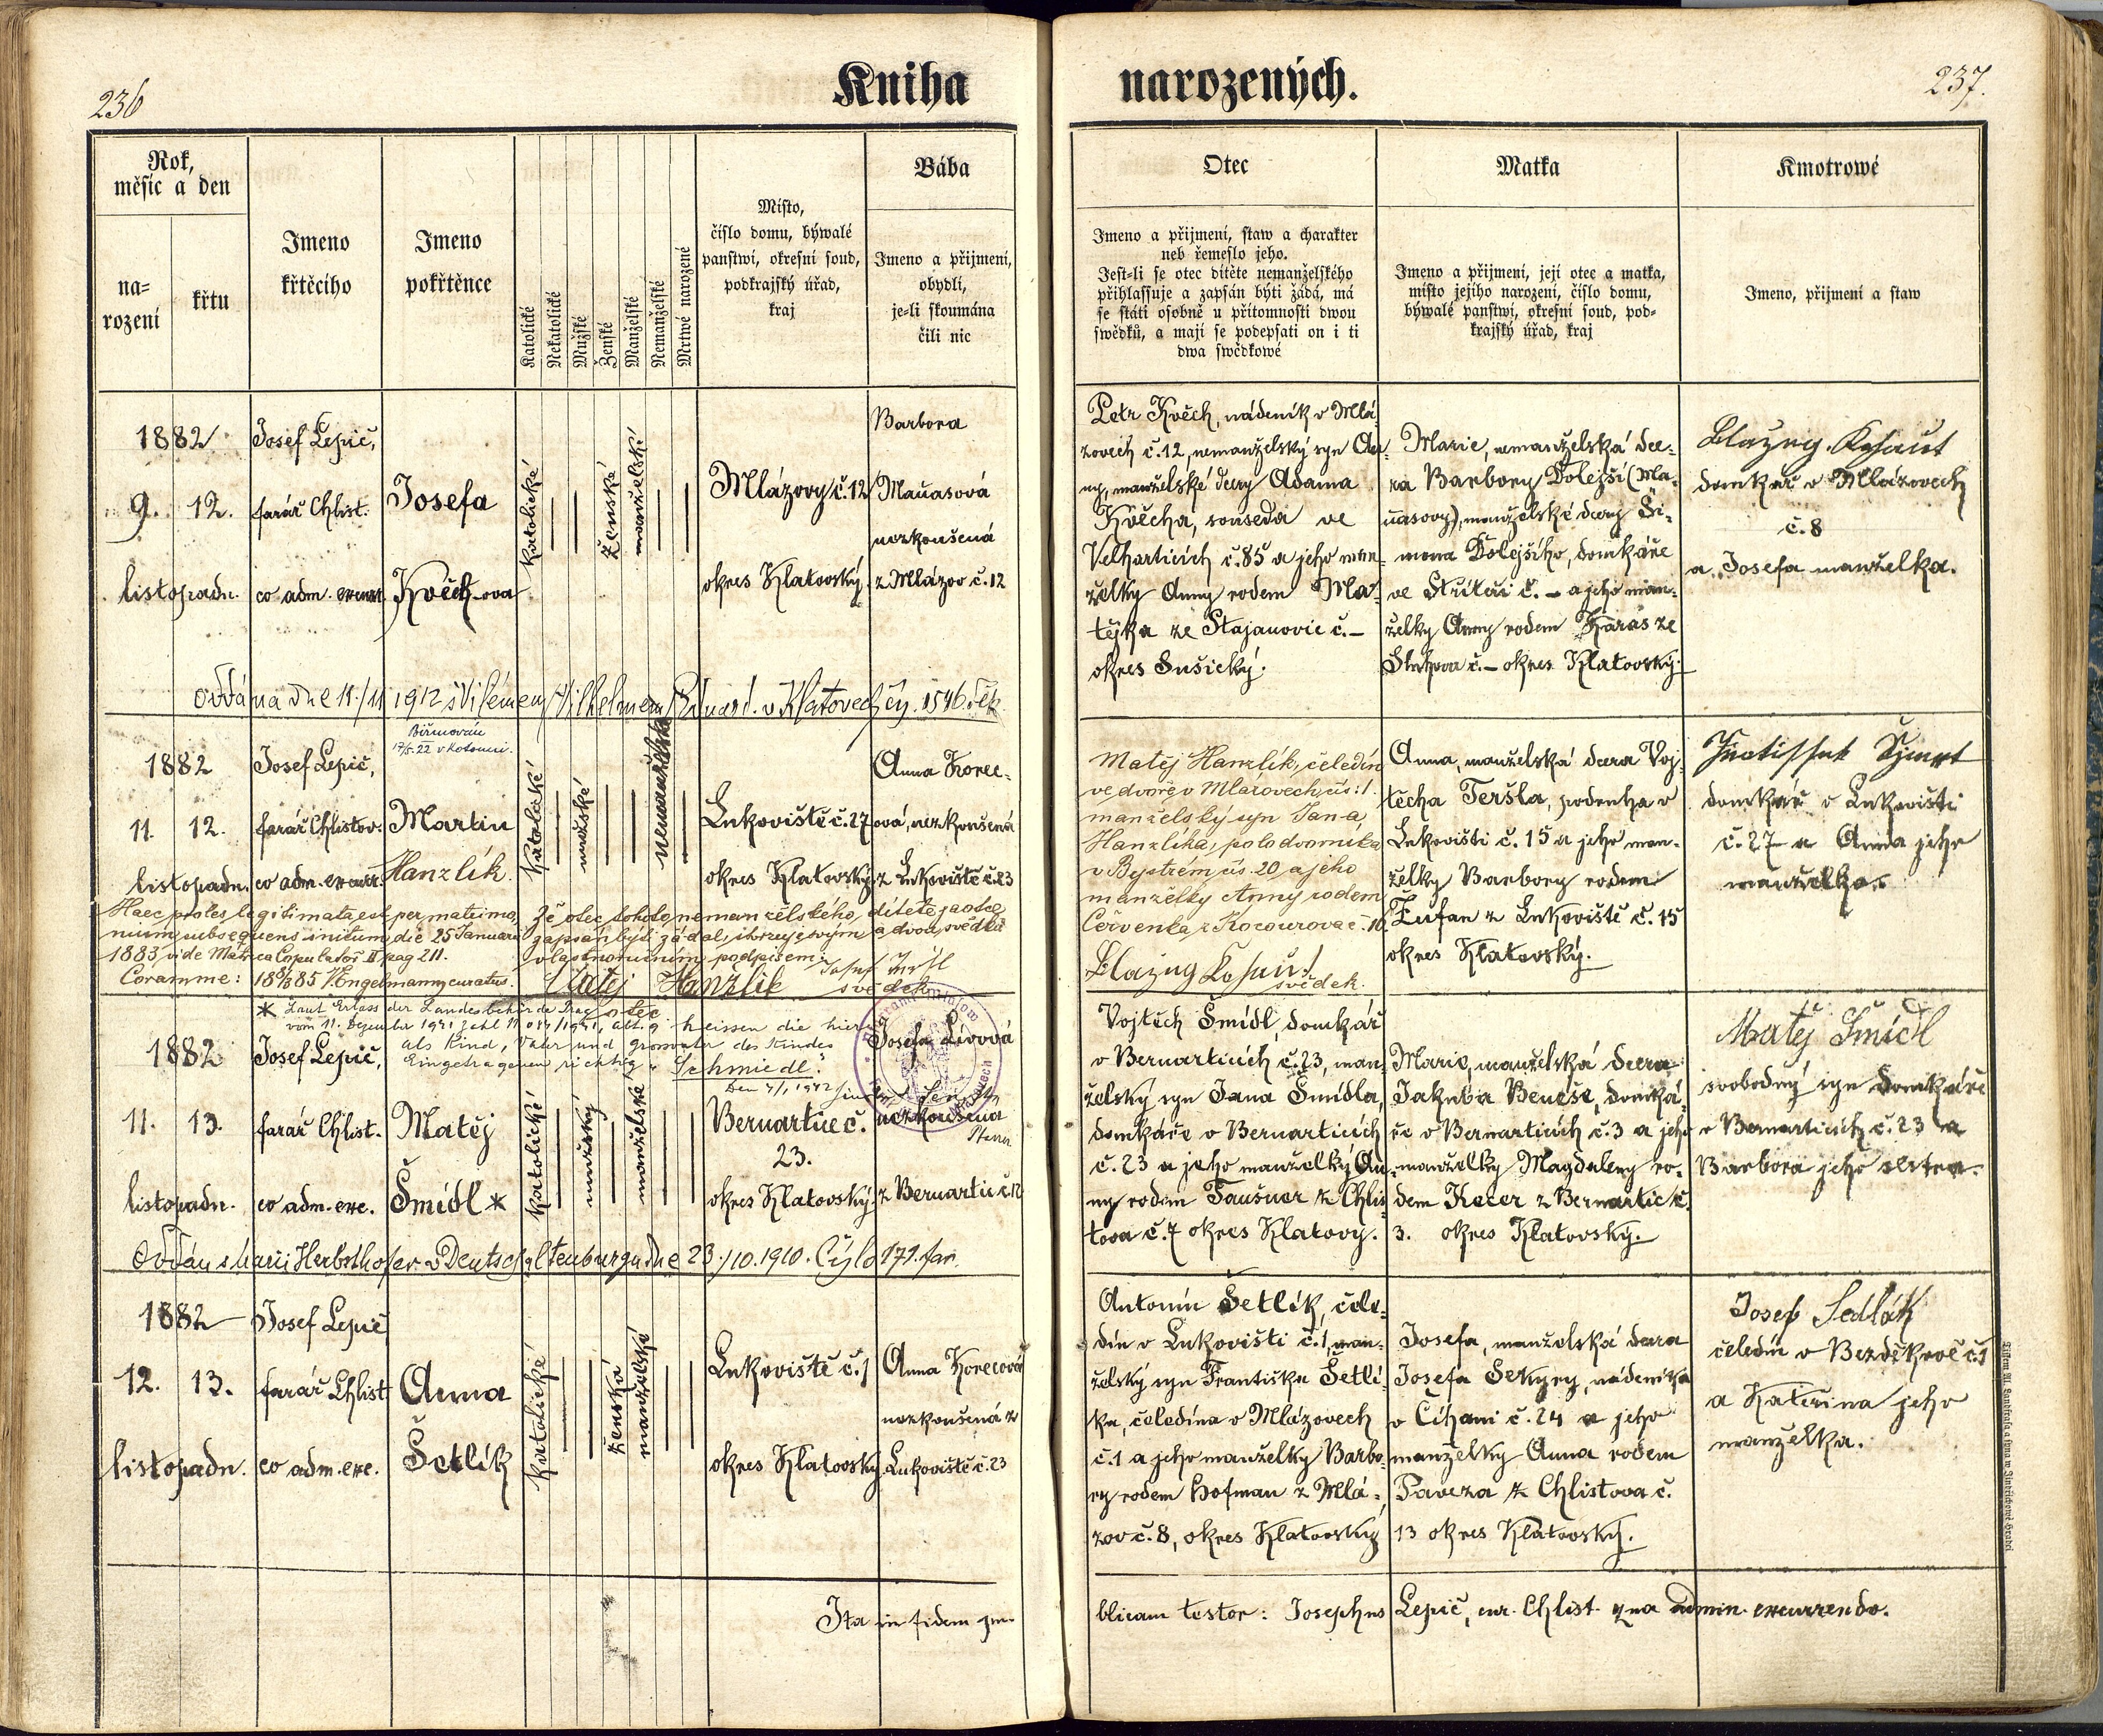 236
Kniha
narozených.
237.
Rok,
měsíc a den
na-
rození
křtu
Jmeno
křtěcího
Jmeno
pokřtěnce
Katolické
Nekatolické
Mužské
Ženské
Manželské
Nemanželské
Mrtwé narozené
Místo,
číslo domu, býwalé
panstwí, okresní soud,
podkrajský úřad,
kraj
Bába
Jmeno a přijmení,
obydlí,
je-li skoumána
čili nic
Otec
Jmeno a přijmení, staw a charakter
neb řemeslo jeho.
Jest-li se otec dítěte nemanželského
přihlassuje a zapsán býti žádá, má
se státi osobně u přítomnosti dwou
swědků, a mají se podepsati on i ti
dwa swědkowé
Matka
Jmeno a přijmení, její otec a matka,
místo jejího narození, číslo domu,
býwalé panstwí, okresní soud, pod-
krajský úřad, kraj
Kmotrowé
Jmeno, přijmení a staw
1882
9. 12.
listopadu.
Josef Lepič,
farář Chlist.
co adm. excurr.
Josefa
Květch-ova
katolické
ženské
manželské
Mlázovy č. 12
okres Klatovský
Barbora
Maňasová
nezkoušená
z Mlázov č. 12
Petr Kvěch, nádeník v Mlá-
zovech č. 12, nemanželský syn An-
ny, manželské dcery Adama
Kvěcha, souseda ve
Velharticích č. 85 a jeho man-
želky Anny rodem Ma-
tějka ze Stajanovic č. –
okres Sušický.
Marie, nemanželská dce-
ra Barbory Dolejší (Ma-
ňasovy), manželské dcery Ši-
mona Dolejšího, domkáře
ve Stříteži č. – a jeho man-
želky Anny rodem Karas ze
č. – okres Klatovský.
domkář v Mlázovech
č. 8
a Josefa manželka.
oddána dne 11./11 1912 s Vilémem (Vilhelmem) v Klatovech čj. 1546. děk.
1882
11. 12.
listopadu.
Josef Lepič,
farář Chlistov.
co adm. excurr.
Biřmován
17/5. 22 v Kolowei.
Martin
Hanzlík.
katolické
mužské
nemanželské
Lukoviště č. 27
okres Klatovský
Anna Korec-
ová, nezkoušená
z Lukoviště č. 23
Matěj Hanzlík, čeledín
ve dvoře v Mlázovech čís: 1.
manželský syn Jana
Hanzlíka, polodvorníka
v Bystrém čís. 20 a jeho
manželky Anny rodem
Červenka z Kocourova č. 10
Anna, manželská dcera Voj-
těcha Teršla, podruha v
Lukovišti č. 15 a jeho man-
želky Barbory rodem
Žufan z Lukoviště č. 15
okres Klatovský.
domkář v Lukovišti
č. 27 a Anna jeho
manželka.
Haec proles legitimata est per matrimo-
nium subsequens initum die 25 Januarii
1883 vide Matrica Copulator. II pag 211.
Coram me: 18 85 V. Engelmann, curatus.
Že otec tohoto nemanželského dítěte za otce
zapsán býti žádal, stvrzuje svým a dvou svědků
vlastnoručním podpisem:
Matěj Hanzlík
otec
svědek
svědek.
* Laut Erlass der Landesbehörde Prag
vom 11. Dezember 1941 Zahl heissen die hier
als Kind, Vater und Grossvater des Kindes
Eingetragenen richtig „Schmiedl".
1882
11. 13.
listopadu.
Josef Lepič,
farář Chlist.
co adm. exc.
Matěj
Šmídl *
katolické
mužský
manželské
Bernartice č.
23.
okres Klatovský
Josefa Lívová
nezkoušená
z Bernartic č. 12
Vojtěch Šmídl, domkář
v Bernarticích č. 23, man-
želský syn Jana Šmídla,
domkáře v Bernarticích
č. 23 a jeho manželky An-
ny rodem Taušner z Chlis-
tova č. 7 okres Klatovy.
Marie, manželská dcera
Jakuba Beneše, domká-
ře v Bernarticích č. 3 a jeho
manželky Magdaleny ro-
dem Kecer z Bernartic č.
3. okres Klatovský.
Matěj Šmídl
svobodný syn domkáře
v Bernarticích č. 23 a
Barbora jeho sestra.
Oddán s Marií Herbsthofer v Deutsch altenburgu dne 23./10. 1910. Číslo 171. far.
1882
12. 13.
listopadu.
Josef Lepič
farář Chlist
co adm. exc.
Anna
Šetlík
katolické
ženské
manželské
Lukoviště č. 1
okres Klatovský
Anna Korecová
nezkoušená z
Lukoviště č. 23
Antonín Šetlík, čele-
dín v Lukovišti č. 1, man-
želský syn Františka Šetlí-
ka, čeledína v Mlázovech
č. 1 a jeho manželky Barbo-
ry rodem Hofman z Mlá-
zov č. 8, okres Klatovský
Josefa, manželská dcera
Josefa Sekyry, nádeníka
v Číhani č. 24 a jeho
manželky Anna rodem
Paveza z Chlistova č.
13 okres Klatovský.
Josef Sedlák
čeledín v Bezděkově č. 1
a Kateřina jeho
manželka.
Ita in fidem pu-
blicam testor: Josephus Lepič, cur. Chlist. qua admin. excurrendo.